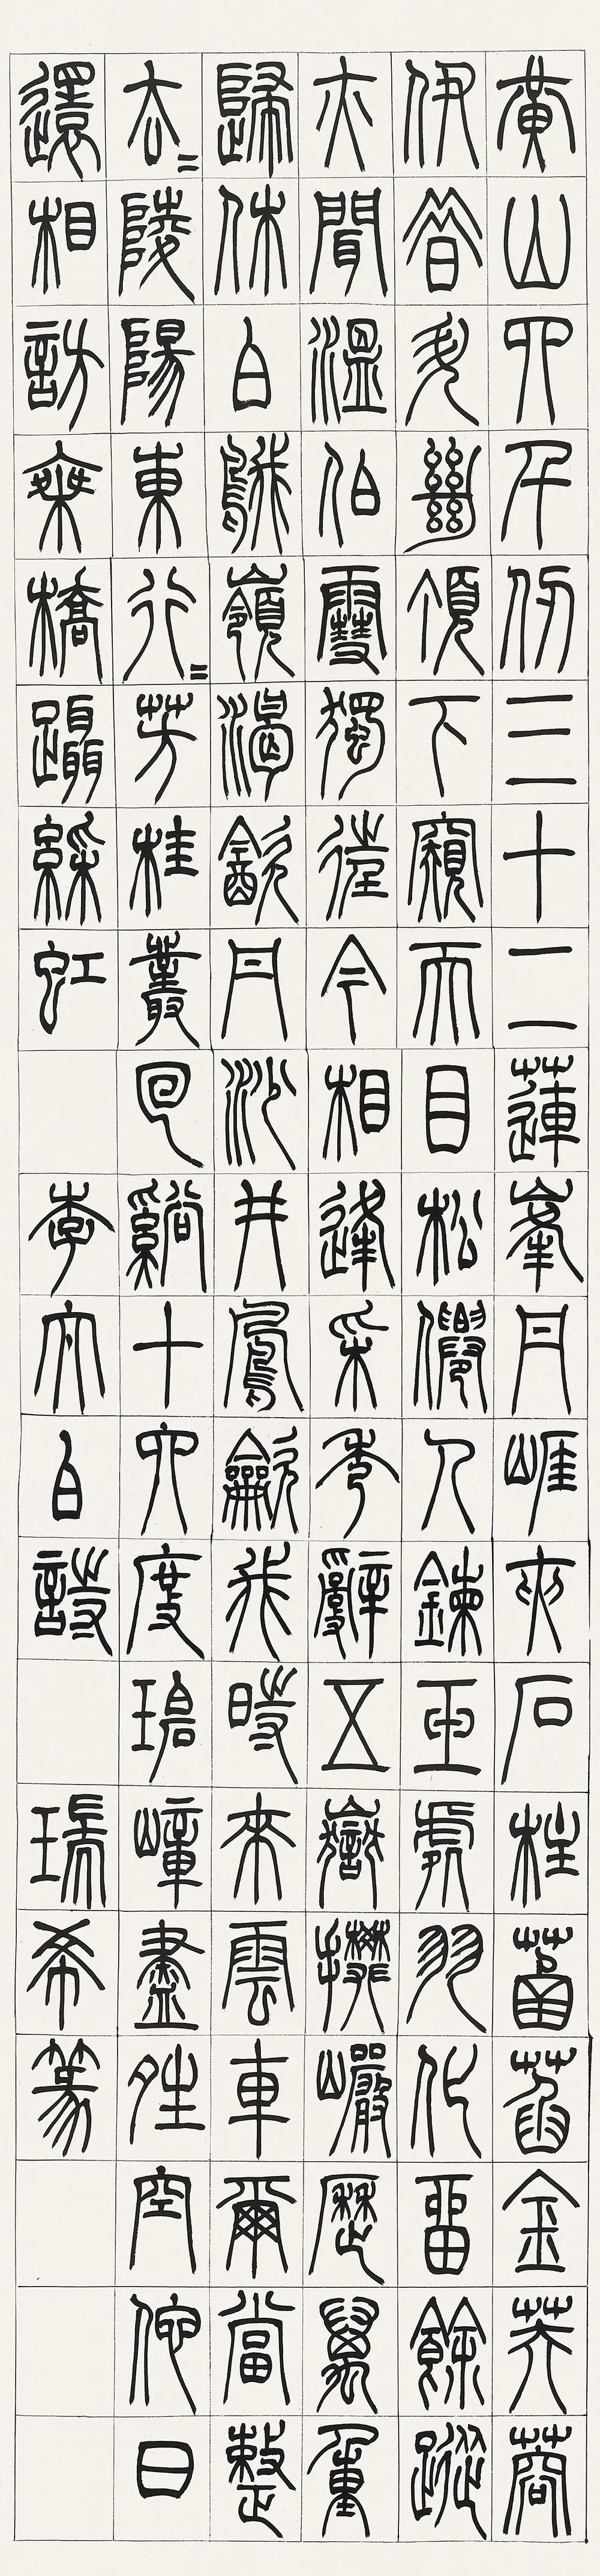 黃山四千仞三十二蓮峯丹崖夾石柱菡萏金芙蓉
伊昔升絕頂下窺天目松僊人鍊玉處羽化留餘蹤
亦聞溫伯雪獨往今相逢采秀辭五嶽攀巖歷萬重
歸休白鵝嶺渴飲丹沙井鳳龡我時來雲車爾當整
去〻陵陽東行〻芳桂叢回谿十六度碧嶂盡夝空佗日
還相訪乘橋躡綵虹 李太白詩 瑞希篆